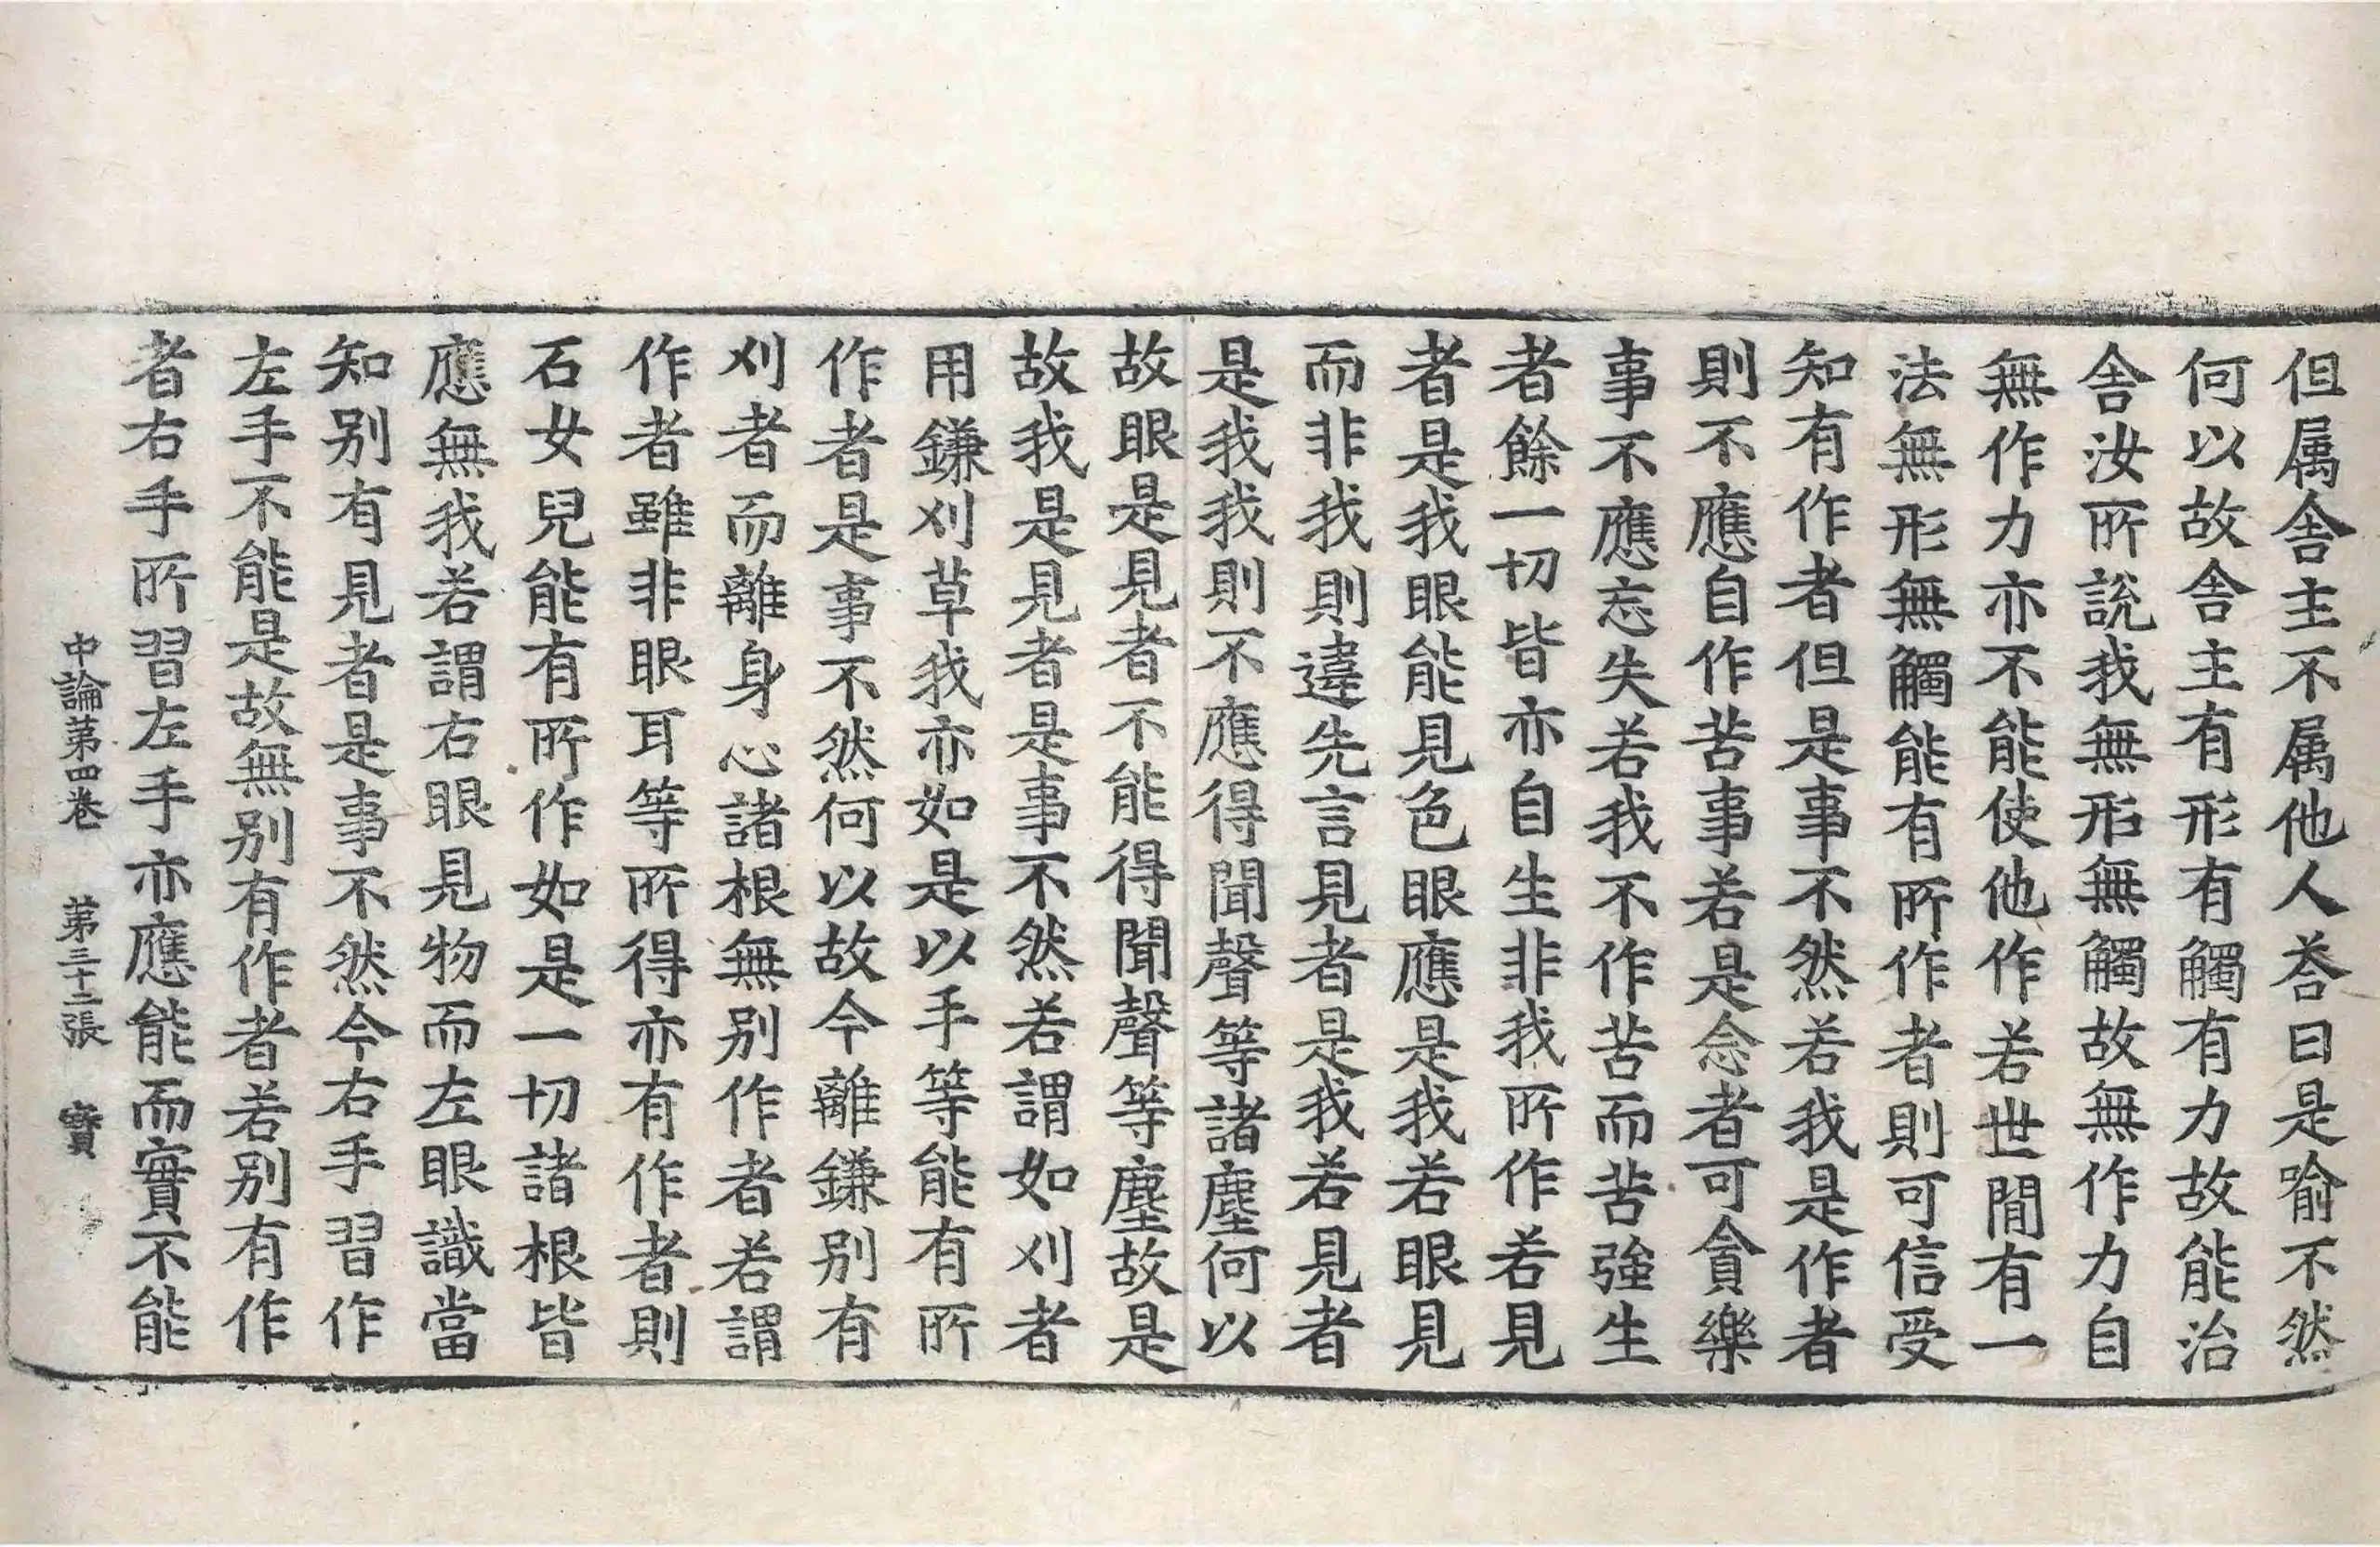 但属舍主不属他人荅曰是喻不然
何以故舍主有形有觸有力故能治
舍汝所說我無形無觸故無作力自
無作力亦不能使他作若世間有一
法無形無觸能有所作者則可信受
知有作者但是事不然若我是作者
則不應自作苦事若是念者可貪樂
事不應忘失若我不作苦而苦強生
者餘一切皆亦自生非我所作若見
者是我眼能見色眼應是我若眼見
而非我則違先言見者是我若見者
是我我則不應得聞聲等諸塵何以
故眼是見者不能得聞聲等塵故是
故我是見者是事不然若謂如刈者
用鎌刈草我亦如是以手等能有所
作者是事不然何以故今離鎌别有
刈者而離身心諸根無别作者若謂
作者雖非眼耳等所得亦有作者則
石女兒能有所作如是一切諸根皆
應無我若謂右眼見物而左眼識當
知别有見者是事不然今右手習作
左手不能是故無别有作者若别有作
者右手所習左手亦應能而實不能
中論第四卷 第三十二張 寳